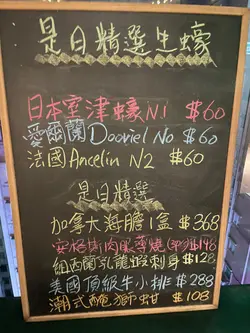 是日精選生蠔
日本室津蠔N1 $60
愛爾蘭Dooviel No $60
法國Ancelin N2 $60
是日精選
加拿大海膽1盒 $368
安格斯肉眼串燒 $148
紐西蘭乳龍蝦刺身 $128
美國頂級牛小排 $288
潮式醃獅蚶 $108